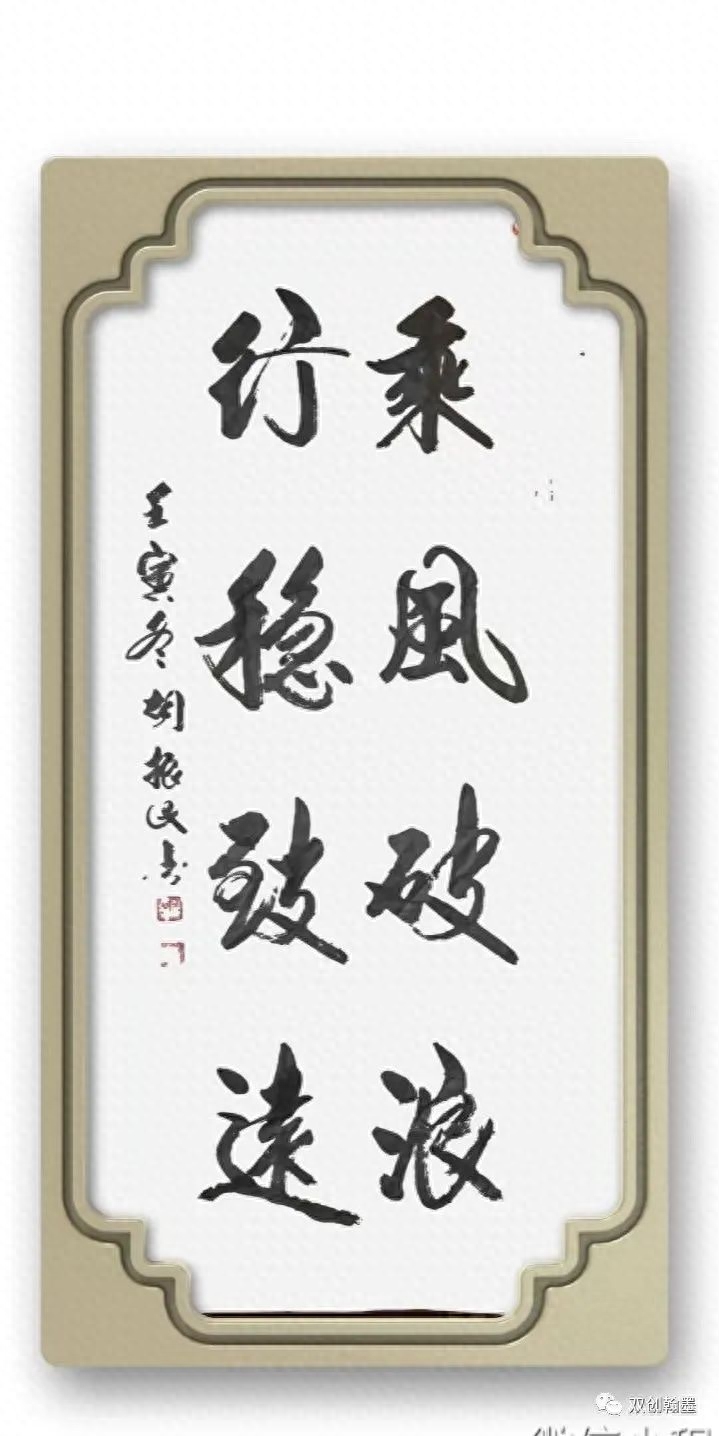 乘風破浪
行稳致遠
壬寅冬胡振民书
双创翰墨